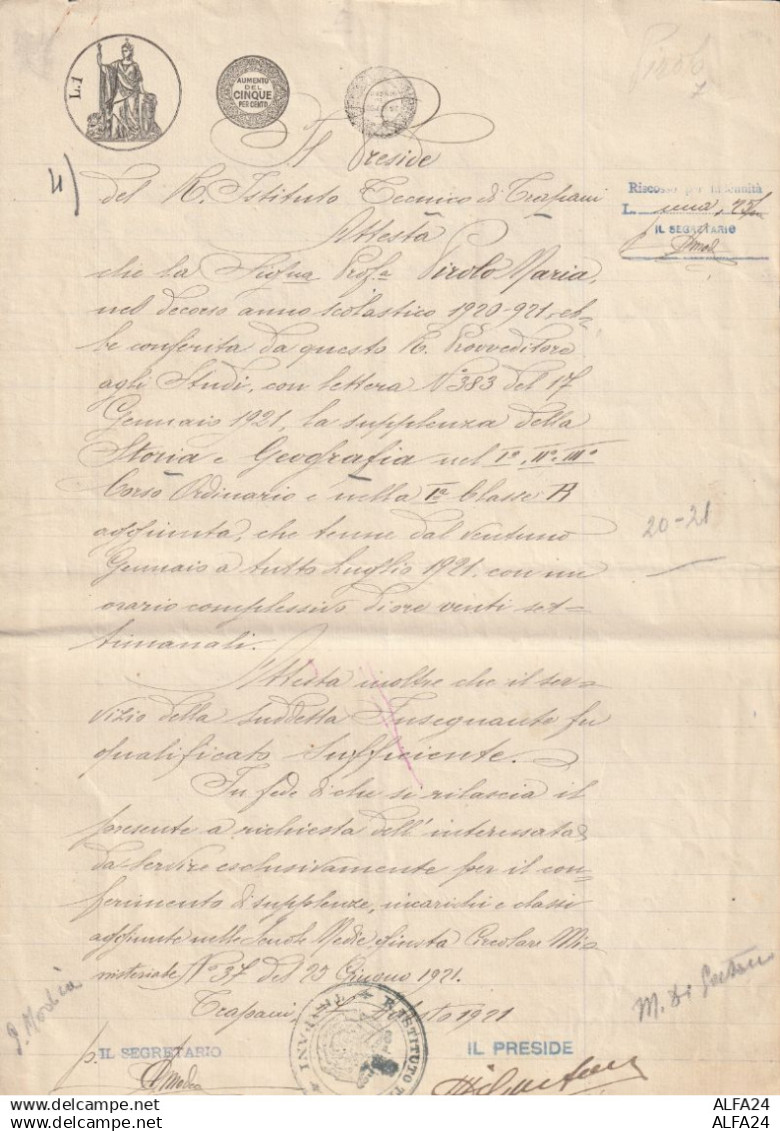 L. 1
AUMENTO
DEL
CINQUE
PER CENTO
Pirolo
4)
Il Preside
del R. Istituto Tecnico di Trapani
Riscosso per indennità
L. una, 25
IL SEGRETARIO
Attesta
che la Sig.na Prof.a Pirolo Maria,
nel decorso anno scolastico 1920-921, eb=
be conferita da questo R. Provveditore
agli Studi, con lettera N° 383 del 17
Gennaio 1921, la supplenza della
Storia e Geografia nel I°, II°, III°
Corso Ordinario e nella Ia Classe A
aggiunta, che tenne dal ventuno
20-21
Gennaio a tutto Luglio 1921. con un
orario complessivo di ore venti set=
timanali.
Attesta inoltre che il ser=
vizio della suddetta Insegnante fu
qualificato Sufficiente.
In fede di che si rilascia il
presente a richiesta dell'interessata
da servire esclusivamente per il con=
ferimento di supplenze, incarichi e classi
aggiunte nelle Scuole Medie, giusta Circolare Mi=
nisteriale N° 37 del 23 Giugno 1921.
Trapani, 1921
p. IL SEGRETARIO
IL PRESIDE
R. ISTITUTO
TRAPANI
ALFA24
ALFA24